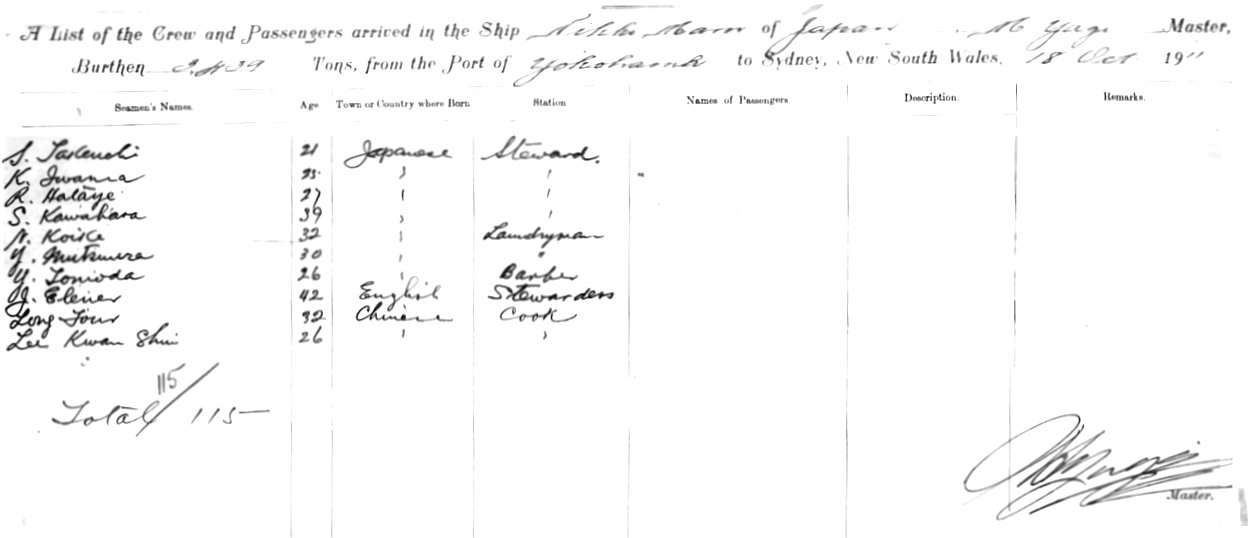 A List of the Crew and Passengers arrived in the Ship Nikko Maru of Japan M Yagi Master,
Burthen 3439 Tons, from the Port of Yokohama to Sydney, New South Wales, 18 Oct 1911
Seamen's Names. Age Town or Country where Born Station Names of Passengers Description. Remarks.
S. Takeuchi 21 Japanese Steward.
K. Iwama 25 " "
R. Hataye 27 " "
S. Kawahara 39 " "
N. Koike 32 " Laundryman
Y. 30 " "
Y. Tomioda 26 " Barber
J. Elener 42 English Stewardess
Long Four 32 Chinese Cook
Lee Kwan Shui 26 " "
115
Total 115
Master.